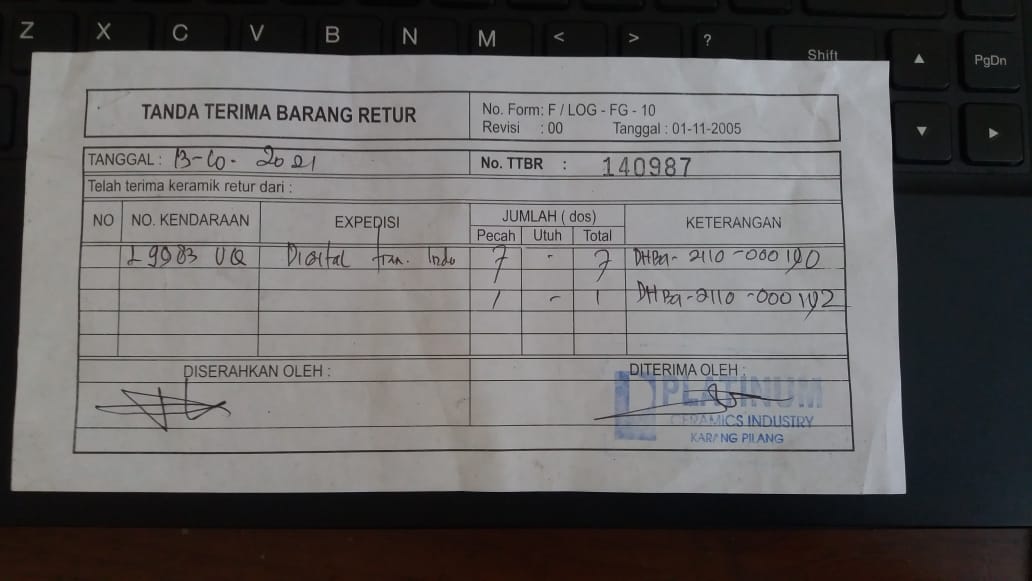 Z X C V B N M < > ? Shift PgDn
TANDA TERIMA BARANG RETUR
No. Form: F / LOG - FG - 10
Revisi : 00 Tanggal : 01-11-2005
TANGGAL : 13-10-2021
No. TTBR : 140987
Telah terima keramik retur dari :
NO NO. KENDARAAN EXPEDISI JUMLAH ( dos) KETERANGAN
Pecah Utuh Total
L 9983 UQ Digital Tran. Indo 7 - 7 DHBa-2110-000190
1 - 1 DHBa-2110-000192
DISERAHKAN OLEH : DITERIMA OLEH :
PLATINUM
CERAMICS INDUSTRY
KARANG PILANG